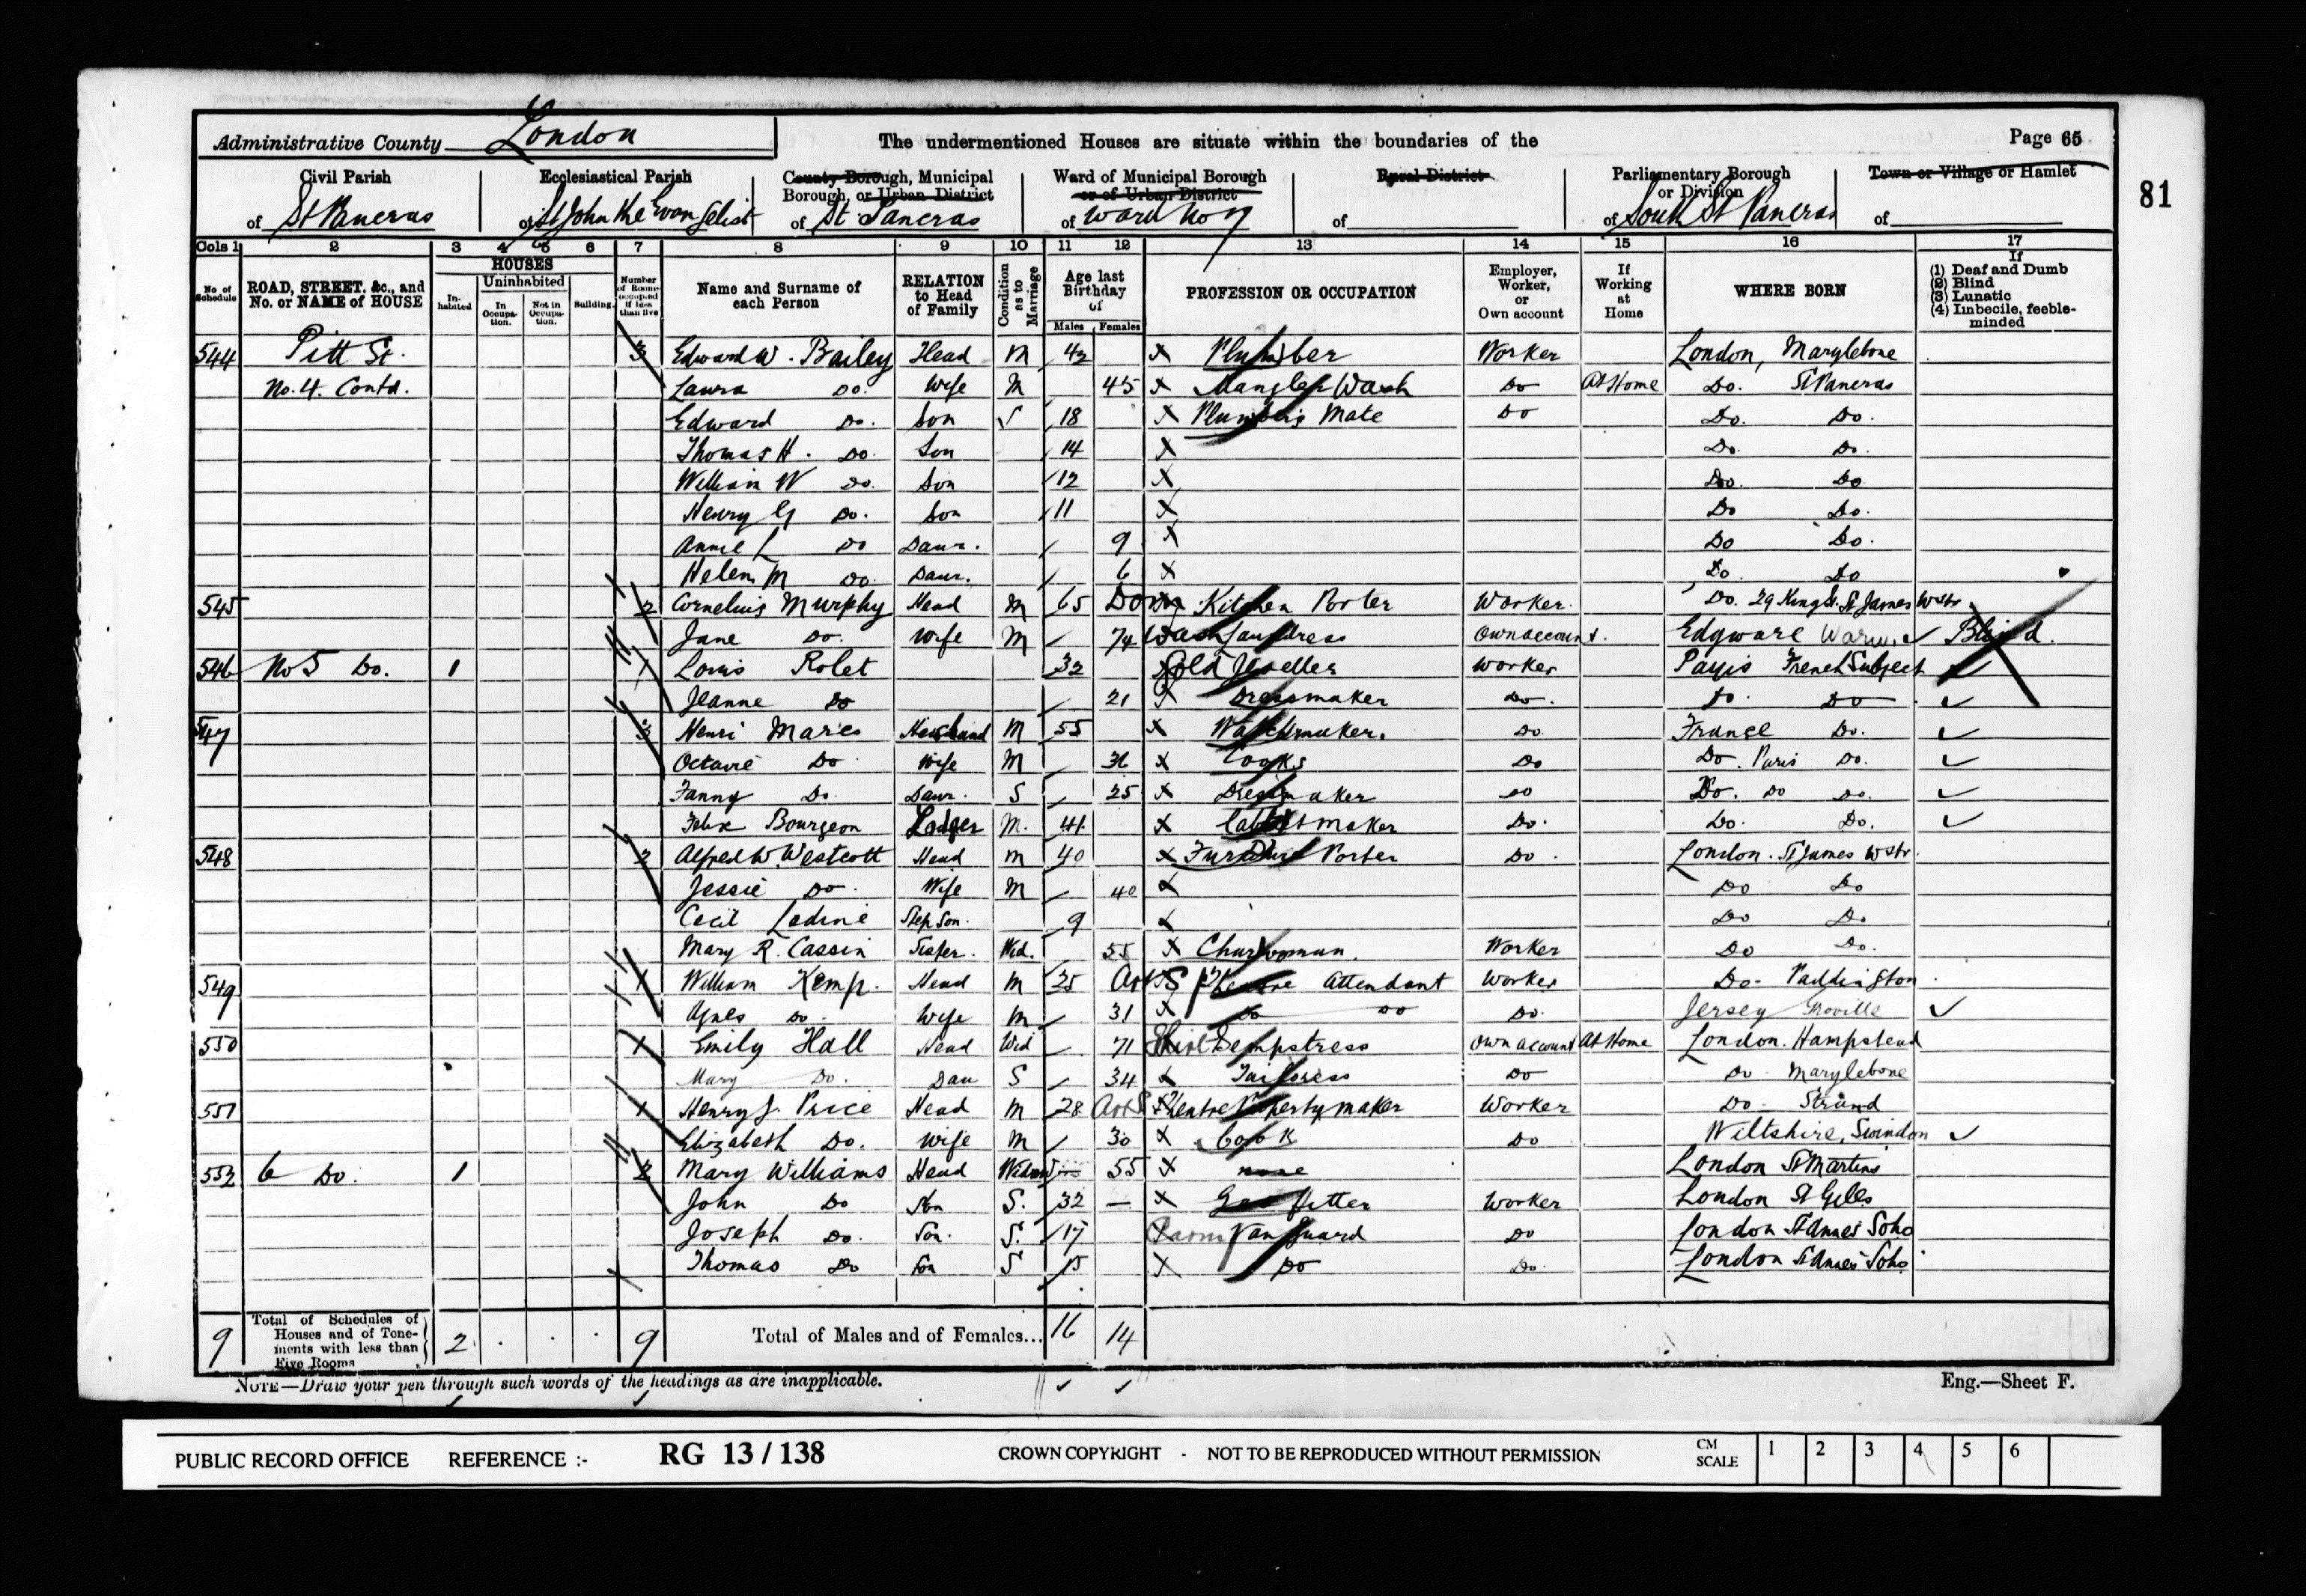 Administrative County London The undermentioned Houses are situate within the boundaries of the Page 65
81
Civil Parish of St Pancras
Ecclesiastical Parish of St John the Evangelist
County Borough, Municipal Borough, or Urban District of St Pancras
Ward of Municipal Borough or of Urban District of Ward No 7
Rural District of
Parliamentary Borough or Division of South St Pancras
Town or Village or Hamlet of
Cols 1 2 3 4 5 6 7 8 9 10 11 12 13 14 15 16 17
No. of Schedule
ROAD, STREET, &c., and No. or NAME of HOUSE
HOUSES
Inhabited
Uninhabited
In Occupation.
Not in Occupation.
Building.
Number of Rooms occupied if less than five
Name and Surname of each Person
RELATION to Head of Family
Condition as to Marriage
Age last Birthday of
Males Females
PROFESSION OR OCCUPATION
Employer, Worker, or Own account
If Working at Home
WHERE BORN
If (1) Deaf and Dumb (2) Blind (3) Lunatic (4) Imbecile, feeble-minded
544 Pitt St. 3 Edward W. Bailey Head M 42 X Plumber Worker London, Marylebone
No. 4. Contd. Laura Do. Wife M 45 X Mangler Wash Do At Home Do. St Pancras
Edward Do. Son S 18 X Plumbers Mate Do Do. Do.
Thomas H. Do. Son 14 X Do. Do.
William W Do. Son 12 X Do. Do
Henry G Do. Son 11 X Do Do.
Annie L Do Daur. 9 X Do Do.
Helen M Do. Daur. 6 X Do. Do
545 2 Cornelius Murphy Head M 65 Dom X Kitchen Porter Worker. Do. 29 King St. St James Wstr.
Jane Do. Wife M 74 Wash Laundress Own account. Edgware Blind.
546 No 5 Do. 1 1 Louis Rolet 32 X Gold Jeweller Worker Paris French Subject
Jeanne Do 21 X Dressmaker Do. Do. Do
547 3 Henri Mares Husband M 55 X Watchmaker. Do. France Do.
Octavie Do. Wife M 36 X Cooks Do Do. Paris Do.
Fanny Do. Daur. S 25 X Dressmaker Do Do. Do Do.
Felix Bourgeon Lodger M. 41 X Cabinet maker Do. Do. Do.
548 2 Alfred W. Westcott Head M 40 X Furniture Porter Do. London. St James Wstr.
Jessie Do. Wife M 40 X Do Do
Cecil Ladine Step Son. 9 X Do Do.
Mary R. Cassin Sister. Wid. 55 X Charwoman. Worker Do Do.
549 1 William Kemp. Head M 35 Art S X Theatre Attendant Worker Do. Paddington.
Agnes Do. Wife M 31 X Do Do Do. Jersey
550 1 Emily Hall Head Wid 71 Shirt Sempstress Own account At Home London. Hampstead
Mary Do. Dau S 34 X Tailoress Do Do. Marylebone
551 1 Henry J. Price Head M 28 Art S Theatre Property maker Worker Do. Strand
Elizabeth Do. Wife M 30 X Cook Do Wiltshire, Swindon
552 6 Do. 1 2 Mary Williams Head Widow 55 X none London St Martins
John Do Son S. 32 — X Gas fitter Worker London St Giles
Joseph Do. Son. S. 17 X Van Guard Do London St Annes Soho
Thomas Do Son S 15 X Do Do. London St Annes Soho
9 Total of Schedules of Houses and of Tenements with less than Five Rooms 2 9 Total of Males and of Females... 16 14
NOTE—Draw your pen through such words of the headings as are inapplicable. Eng.—Sheet F.
PUBLIC RECORD OFFICE REFERENCE :- RG 13 / 138 CROWN COPYRIGHT - NOT TO BE REPRODUCED WITHOUT PERMISSION CM SCALE 1 2 3 4 5 6